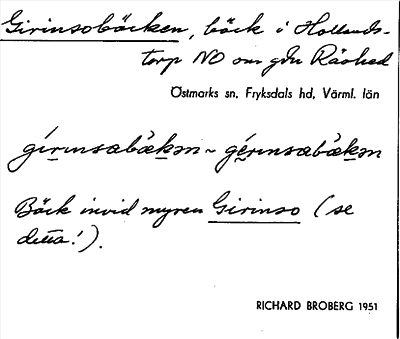 Girinsobäcken, bäck i Hollands-
torp NO om gdn Råhed
Östmarks sn, Fryksdals hd, Värml. län
gírinsabä̀kən ~ gérinsabä̀kən
Bäck invid myren Girinso (se
detta!).
RICHARD BROBERG 1951